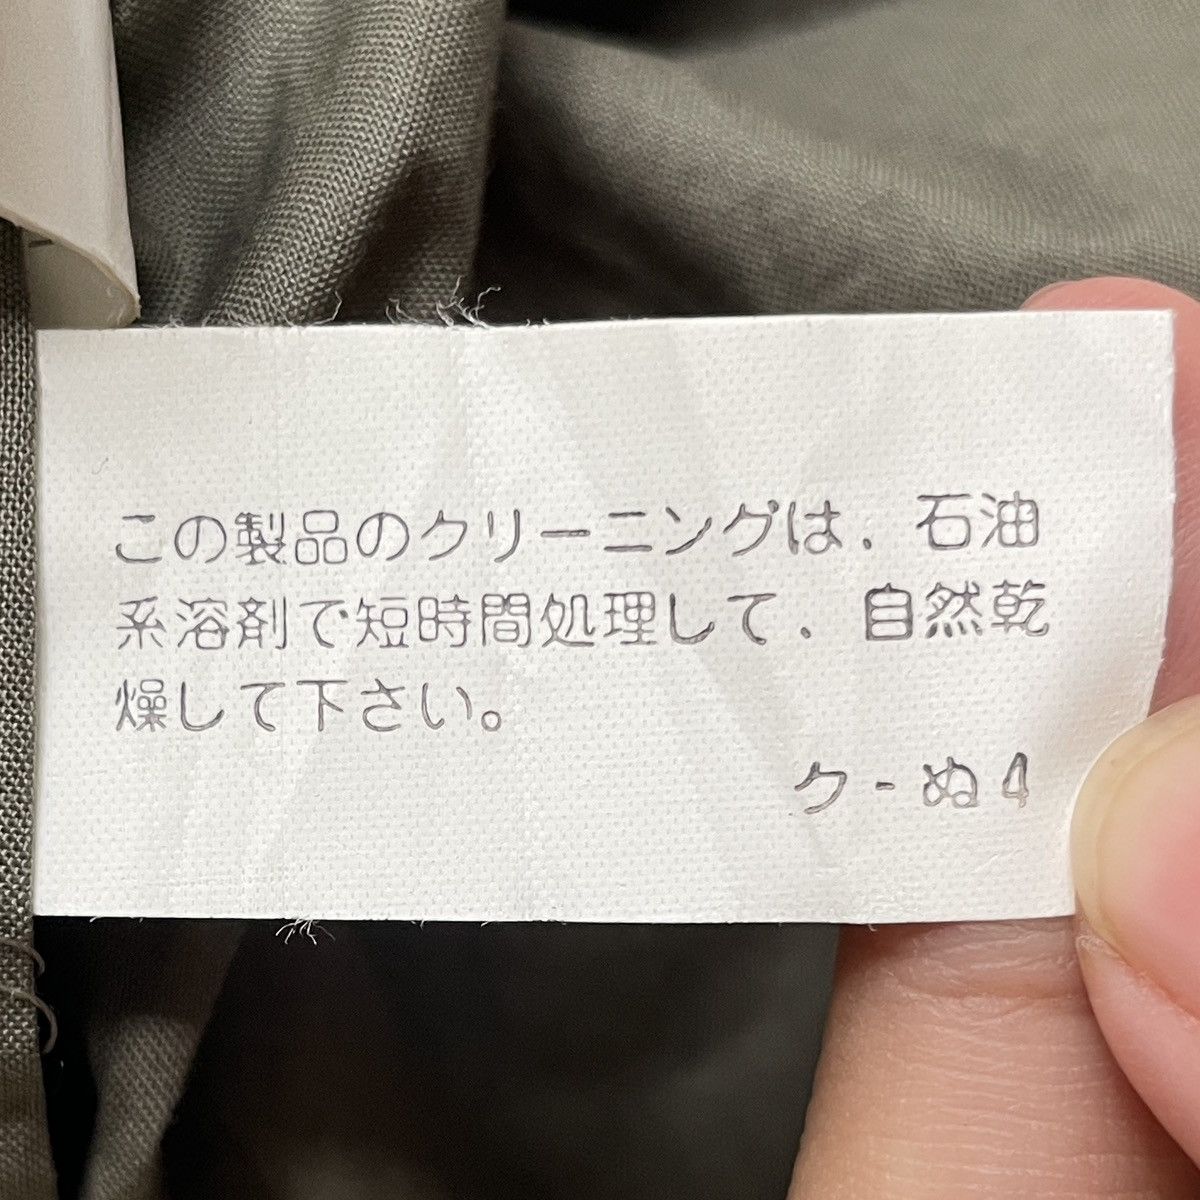 この製品のクリーニングは、石油
系溶剤で短時間処理して、自然乾
燥して下さい。
ク-ぬ4